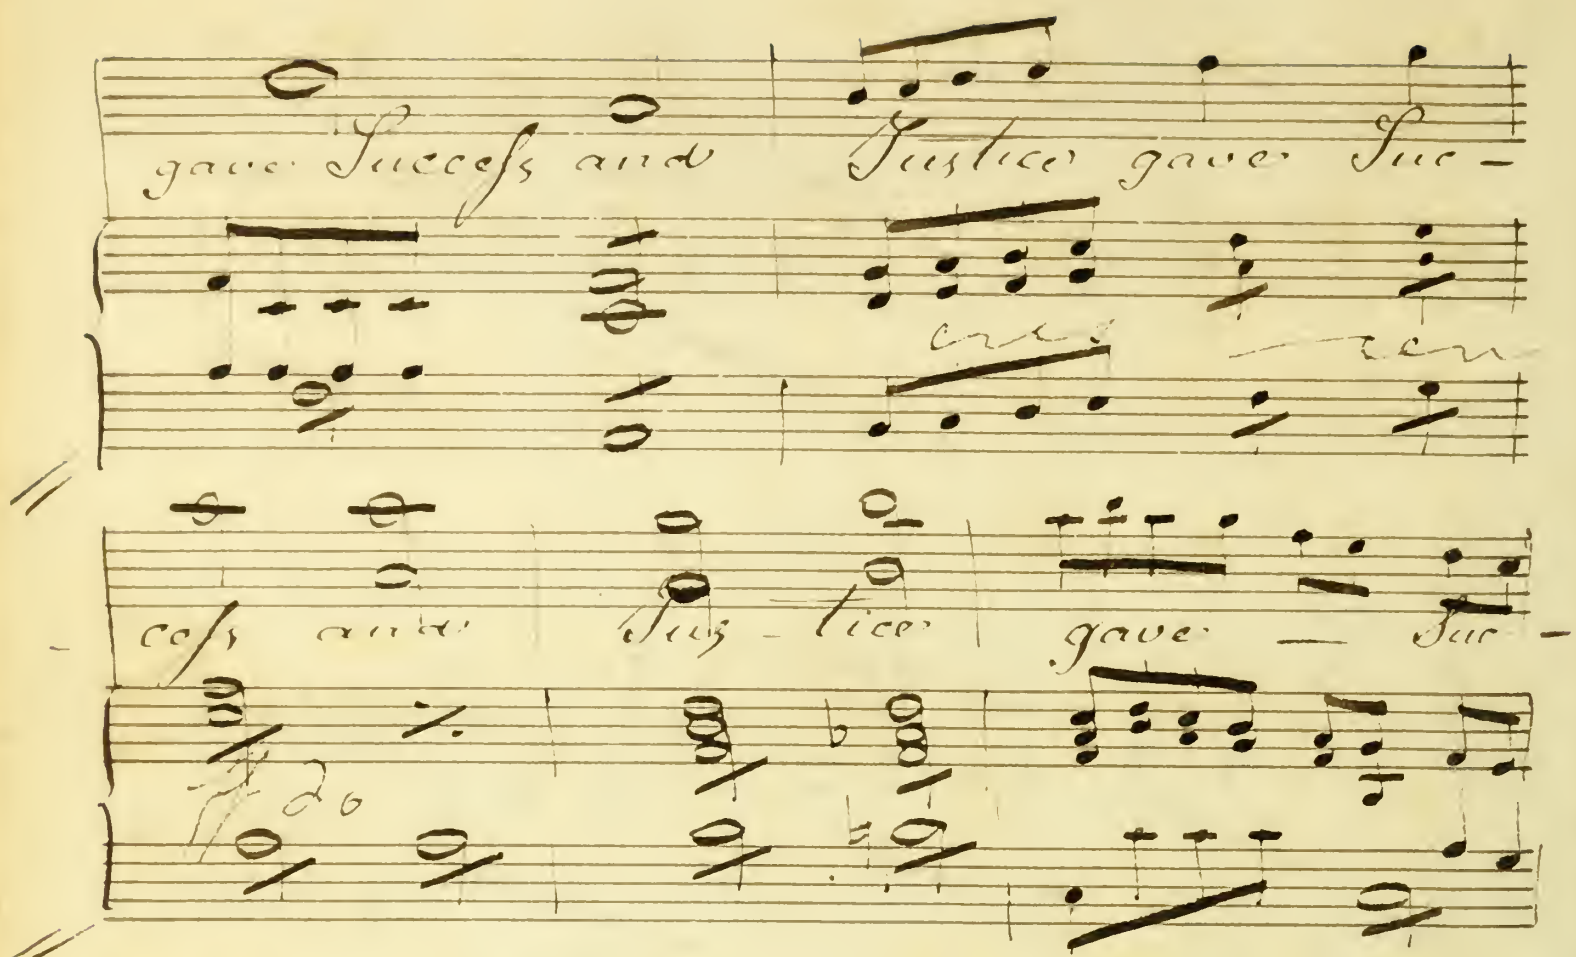 gave Succeſs and Justice gave Suc-
cres - cen
- ceſs and Jus - tice gave - Suc -
ff do